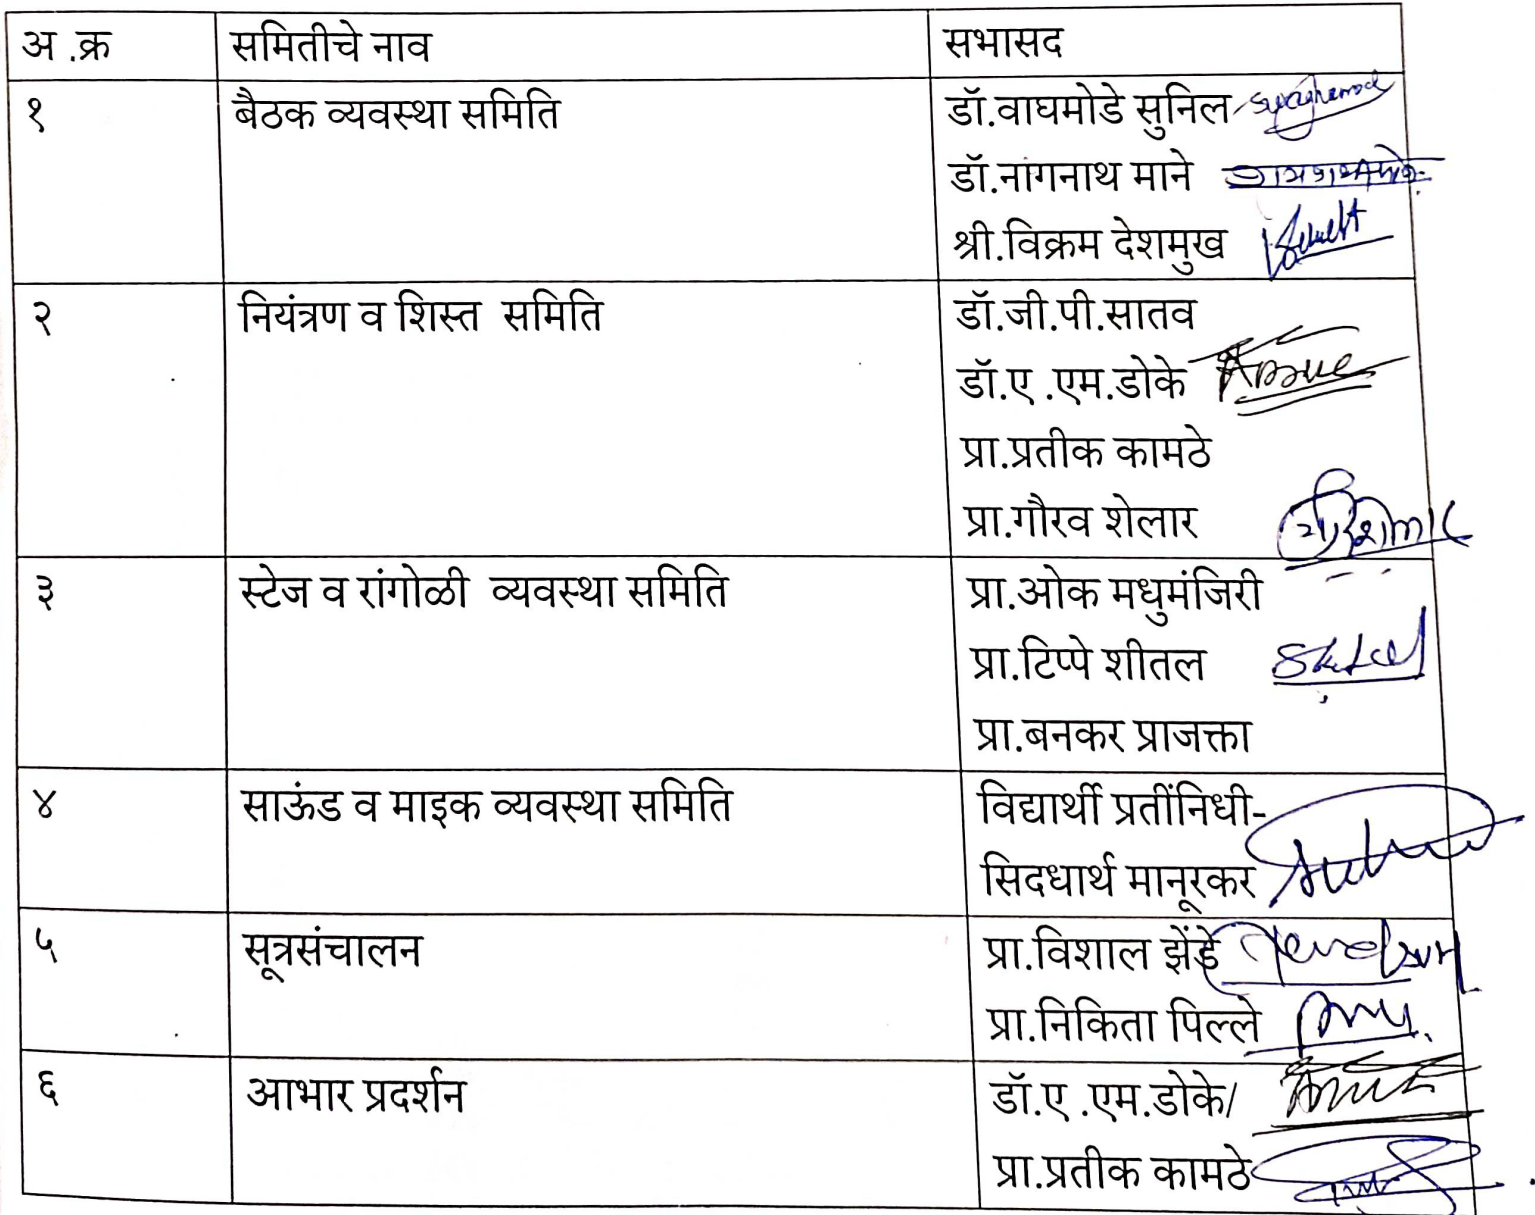 अ .क्र समितीचे नाव सभासद
१ बैठक व्यवस्था समिति डॉ.वाघमोडे सुनिल
डॉ.नागनाथ माने
श्री.विक्रम देशमुख
२ नियंत्रण व शिस्त समिति डॉ.जी.पी.सातव
डॉ.ए .एम.डोके
प्रा.प्रतीक कामठे
प्रा.गौरव शेलार
३ स्टेज व रांगोळी व्यवस्था समिति प्रा.ओक मधुमंजिरी
प्रा.टिप्पे शीतल
प्रा.बनकर प्राजक्ता
४ साऊंड व माइक व्यवस्था समिति विद्यार्थी प्रतींनिधी-
सिदधार्थ मानूरकर
५ सूत्रसंचालन प्रा.विशाल झेंडे
प्रा.निकिता पिल्ले
६ आभार प्रदर्शन डॉ.ए .एम.डोके/
प्रा.प्रतीक कामठे